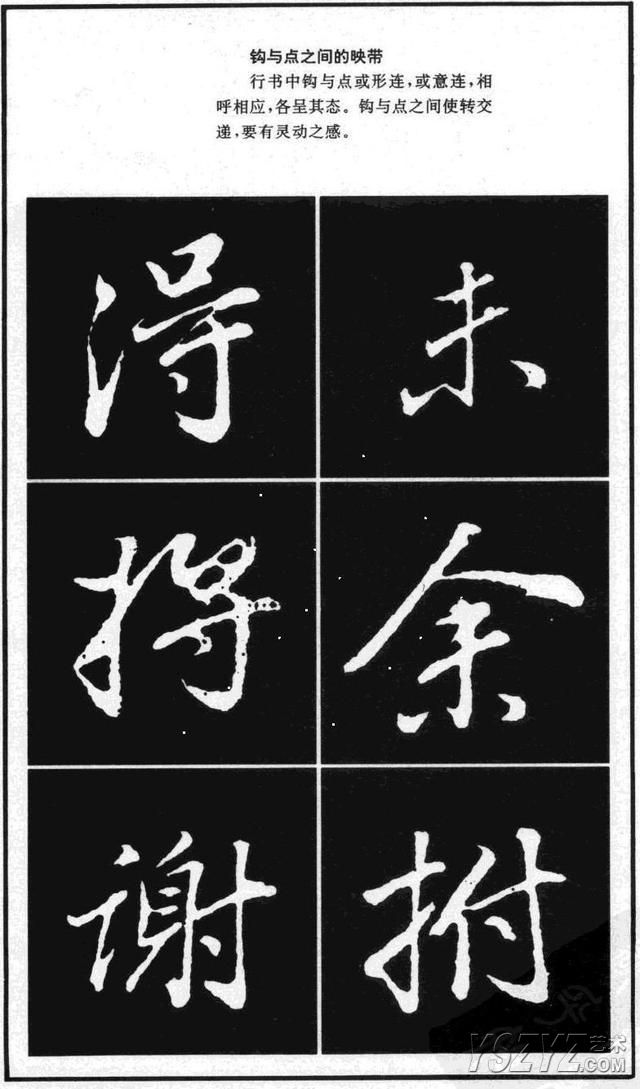 钩与点之间的映带
行书中钩与点或形连，或意连，相
呼相应，各呈其态。钩与点之间使转交
递，要有灵动之感。
未
余
拊
得
谢
YSZYZ艺术
.COM